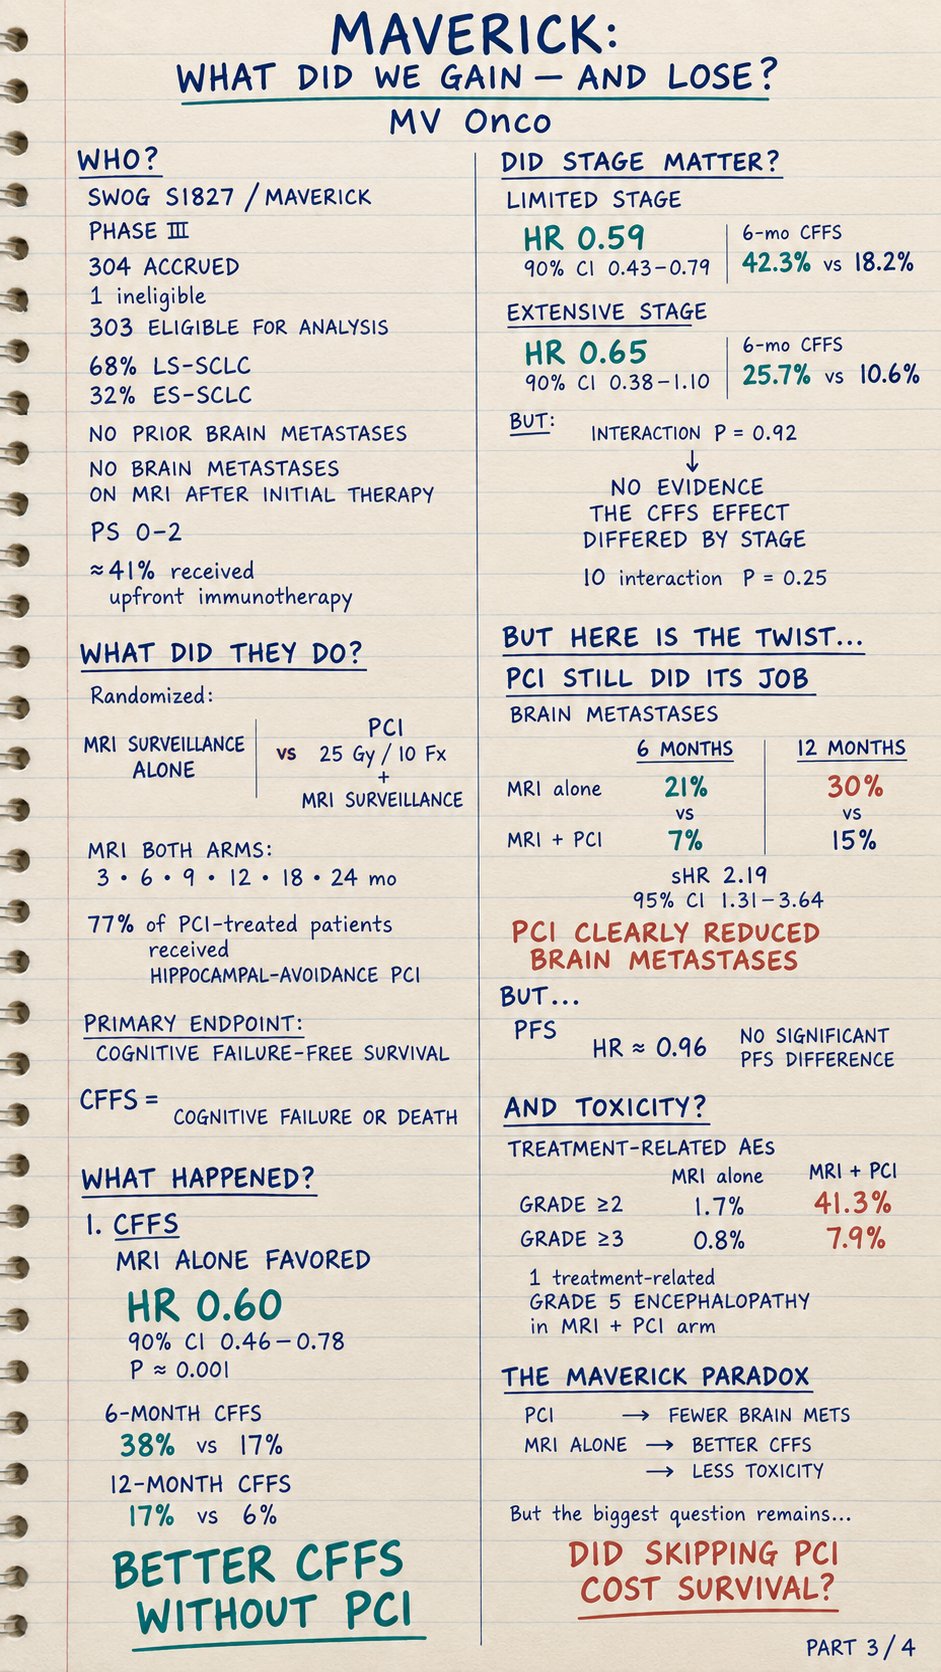 MAVERICK:
WHAT DID WE GAIN — AND LOSE?
MV Onco
WHO?
SWOG S1827 / MAVERICK
PHASE III
304 ACCRUED
1 ineligible
303 ELIGIBLE FOR ANALYSIS
68% LS-SCLC
32% ES-SCLC
NO PRIOR BRAIN METASTASES
NO BRAIN METASTASES
ON MRI AFTER INITIAL THERAPY
PS 0–2
≈41% received
upfront immunotherapy
WHAT DID THEY DO?
Randomized:
MRI SURVEILLANCE
ALONE
vs
PCI
25 Gy / 10 Fx
+
MRI SURVEILLANCE
MRI BOTH ARMS:
3 • 6 • 9 • 12 • 18 • 24 mo
77% of PCI-treated patients
received
HIPPOCAMPAL-AVOIDANCE PCI
PRIMARY ENDPOINT:
COGNITIVE FAILURE-FREE SURVIVAL
CFFS =
COGNITIVE FAILURE OR DEATH
WHAT HAPPENED?
1. CFFS
MRI ALONE FAVORED
HR 0.60
90% CI 0.46–0.78
P ≈ 0.001
6-MONTH CFFS
38% vs 17%
12-MONTH CFFS
17% vs 6%
BETTER CFFS
WITHOUT PCI
DID STAGE MATTER?
LIMITED STAGE
HR 0.59
90% CI 0.43–0.79
6-mo CFFS
42.3% vs 18.2%
EXTENSIVE STAGE
HR 0.65
90% CI 0.38–1.10
6-mo CFFS
25.7% vs 10.6%
BUT:
INTERACTION P = 0.92
↓
NO EVIDENCE
THE CFFS EFFECT
DIFFERED BY STAGE
IO interaction P = 0.25
BUT HERE IS THE TWIST...
PCI STILL DID ITS JOB
BRAIN METASTASES
6 MONTHS 12 MONTHS
MRI alone 21% 30%
vs vs
MRI + PCI 7% 15%
sHR 2.19
95% CI 1.31–3.64
PCI CLEARLY REDUCED
BRAIN METASTASES
BUT...
PFS
HR ≈ 0.96
NO SIGNIFICANT
PFS DIFFERENCE
AND TOXICITY?
TREATMENT-RELATED AES
MRI alone MRI + PCI
GRADE ≥2 1.7% 41.3%
GRADE ≥3 0.8% 7.9%
1 treatment-related
GRADE 5 ENCEPHALOPATHY
in MRI + PCI arm
THE MAVERICK PARADOX
PCI → FEWER BRAIN METS
MRI ALONE → BETTER CFFS
→ LESS TOXICITY
But the biggest question remains...
DID SKIPPING PCI
COST SURVIVAL?
PART 3/4